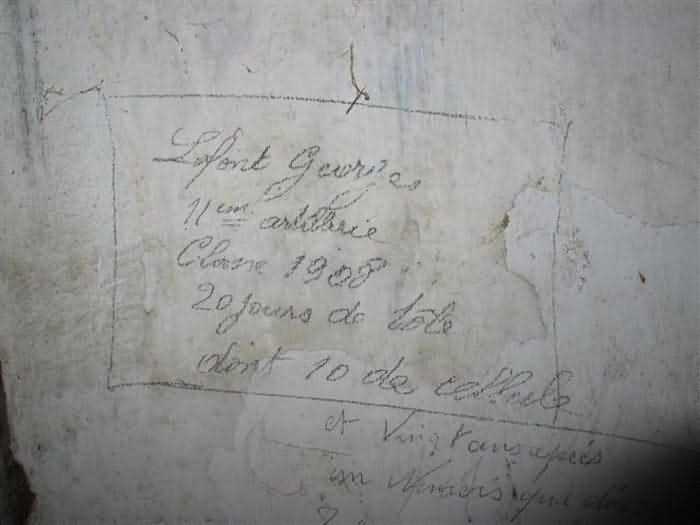 Lafont Georges
11em artillerie
Classe 1908
20 jours de tôle
dont 10 de cellule
et Vingt ans après
un